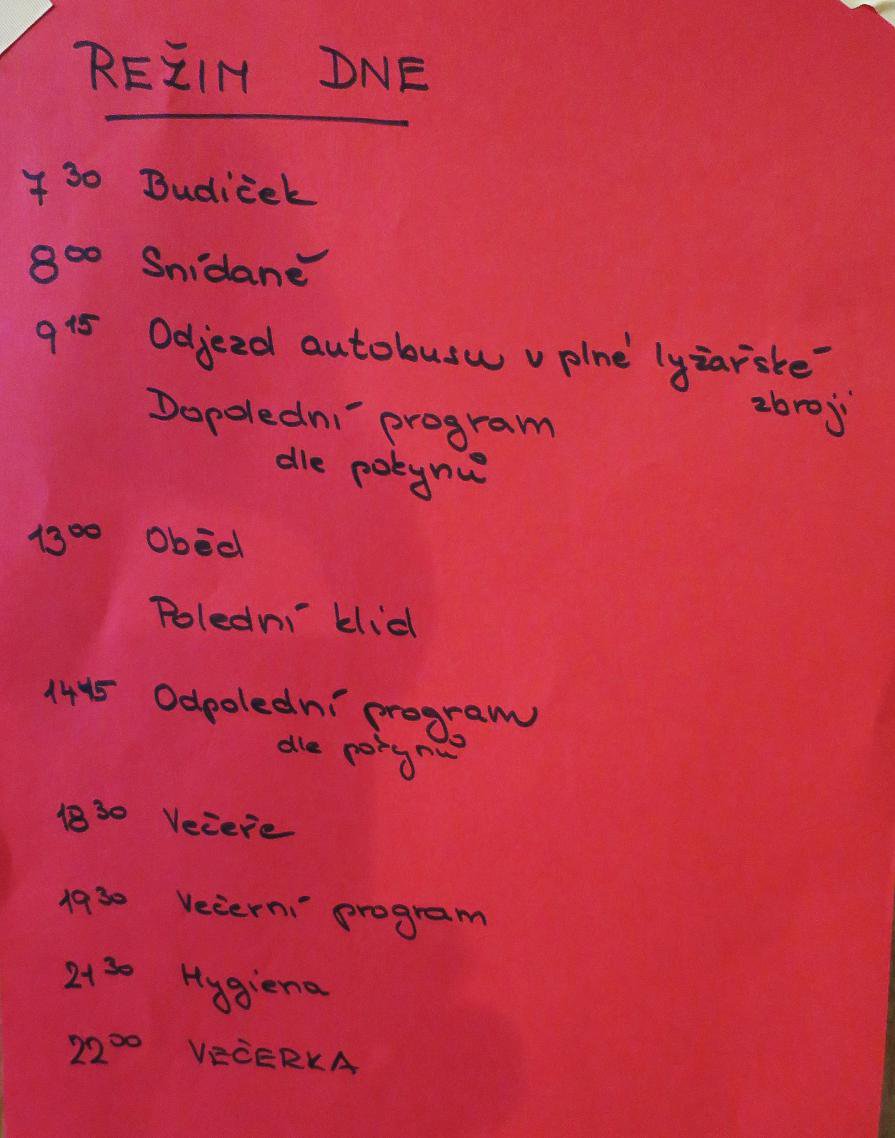 REŽIM DNE
7 30 Budíček
8 00 Snídaně
9 15 Odjezd autobusu v plné lyžařské
zbroji
Dopolední program
dle pokynů
13 00 Oběd
Polední klid
14 45 Odpolední program
dle pokynů
18 30 Večeře
19 30 Večerní program
21 30 Hygiena
22 00 VEČERKA